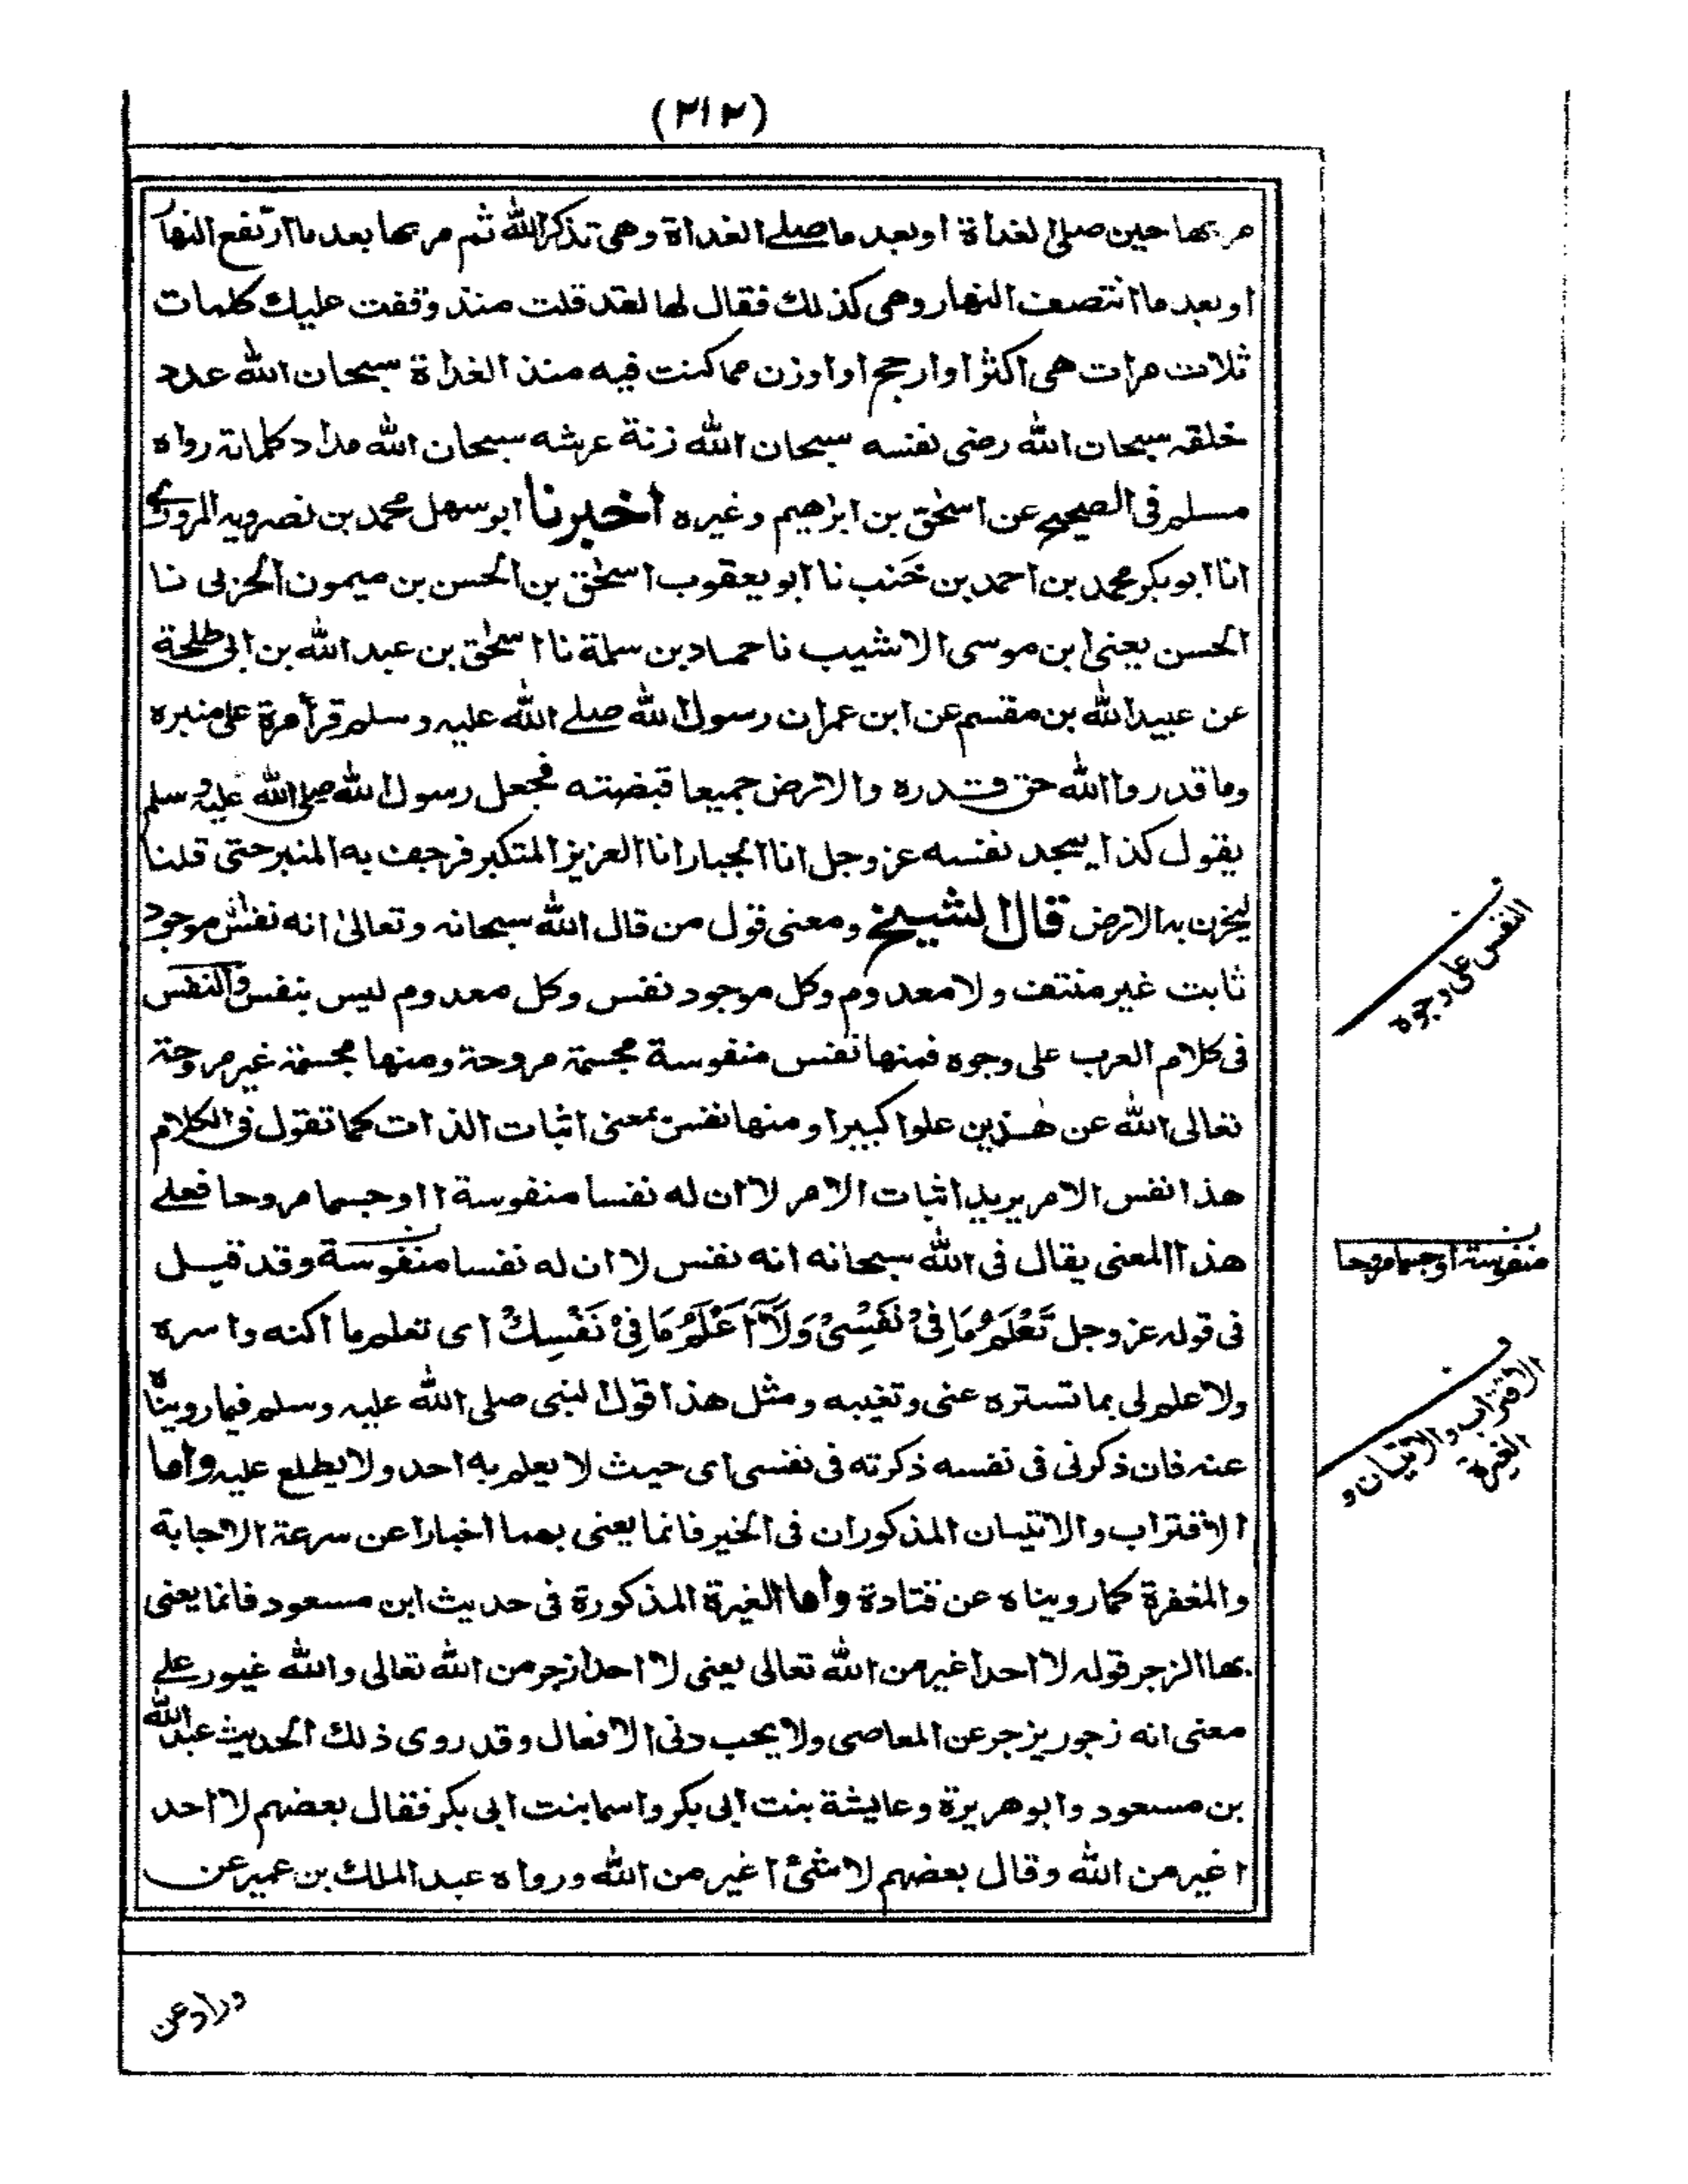 (٢١٢)
مر بها حين صلى الغداة او بعد ما صلے الغداة وهي تذكر الله ثم مر بها بعد ما ارتفع النهار
او بعد ما انتصف النهار وهي كذلك فقال لها لقد قلت منذ وقفت عليك كلمات
ثلاث مرات هي اكثر او ارجح او اوزن مما كنت فيه منذ الغداة سبحان الله عدد
خلقه سبحان الله رضى نفسه سبحان الله زنة عرشه سبحان الله مداد كلماته رواه
مسلم في الصحيح عن اسحٰق بن ابراهيم وغيره اخبرنا ابو سهل محمد بن نصرويه المروزي
انا ابو بكر محمد بن احمد بن خَنب نا ابو يعقوب اسحٰق بن الحسن بن ميمون الحربي نا
الحسن يعني ابن موسى الاشيب نا حماد بن سلمة نا اسحٰق بن عبد الله بن ابي طلحة
عن عبيد الله بن مقسم عن ابن عمران رسول الله صلے الله عليه وسلم قرأ مرة على منبره
وما قدروا الله حق قدره والارض جميعا قبضته فجعل رسول الله صلى الله عليه وسلم
يقول كذا يمجد نفسه عز وجل انا الجبار انا العزيز المتكبر فرجف به المنبر حتى قلنا
ليخرن به الارض قال الشيخ ومعنى قول من قال الله سبحانه وتعالىٰ انه نفس موجود
ثابت غير منتف ولا معدوم وكل موجود نفس وكل معدوم ليس بنفس والنفس
في كلام العرب على وجوه فمنها نفس منفوسة مجسمة مروحة ومنها مجسمة غير مروحة
تعالى الله عن هٰذين علوا كبيرا ومنها نفس بمعنى اثبات الذات كما تقول في الكلام
هذا نفس الامر يريد اثبات الامر لا ان له نفسا منفوسة ااو جسما مروحا فعلے
هذا المعنى يقال في الله سبحانه انه نفس لا ان له نفسا منفوسة وقد قيل
في قوله عز وجل تَعْلَمُ مَا فِيْ نَفْسِيْ وَلَآ اَعْلَمُ مَا فِيْ نَفْسِكَ اى تعلم ما اكنه واسره
ولا علم لي بما تستره عني وتغيبه ومثل هذا قول النبي صلى الله عليه وسلم فيما رويناه
عنه فان ذكرني في نفسه ذكرته في نفسى اى حيث لا يعلم به احد ولا يطلع عليه واما
الاقتراب والاتيان المذكوران في الخبر فانما يعني بهما اخبارا عن سرعة الاجابة
والمغفرة كما رويناه عن قتادة واما الغيرة المذكورة في حديث ابن مسعود فانما يعني
بها الزجر قوله لا احد اغير من الله تعالى يعني لا احد ازجر من الله تعالى والله غيور علے
معنى انه زجور يزجر عن المعاصي ولا يحب دني الافعال وقد روى ذلك الحديث عبد الله
بن مسعود وابو هريرة وعايشة بنت ابي بكر واسما بنت ابي بكر فقال بعضهم لا احد
اغير من الله وقال بعضهم لا شئ اغير من الله ورواه عبد الملك بن عمير عن
النفس على وجوه
منفوسة او جسما مروحا
الاقتراب والاتيان و
الغيرة
وراد عن